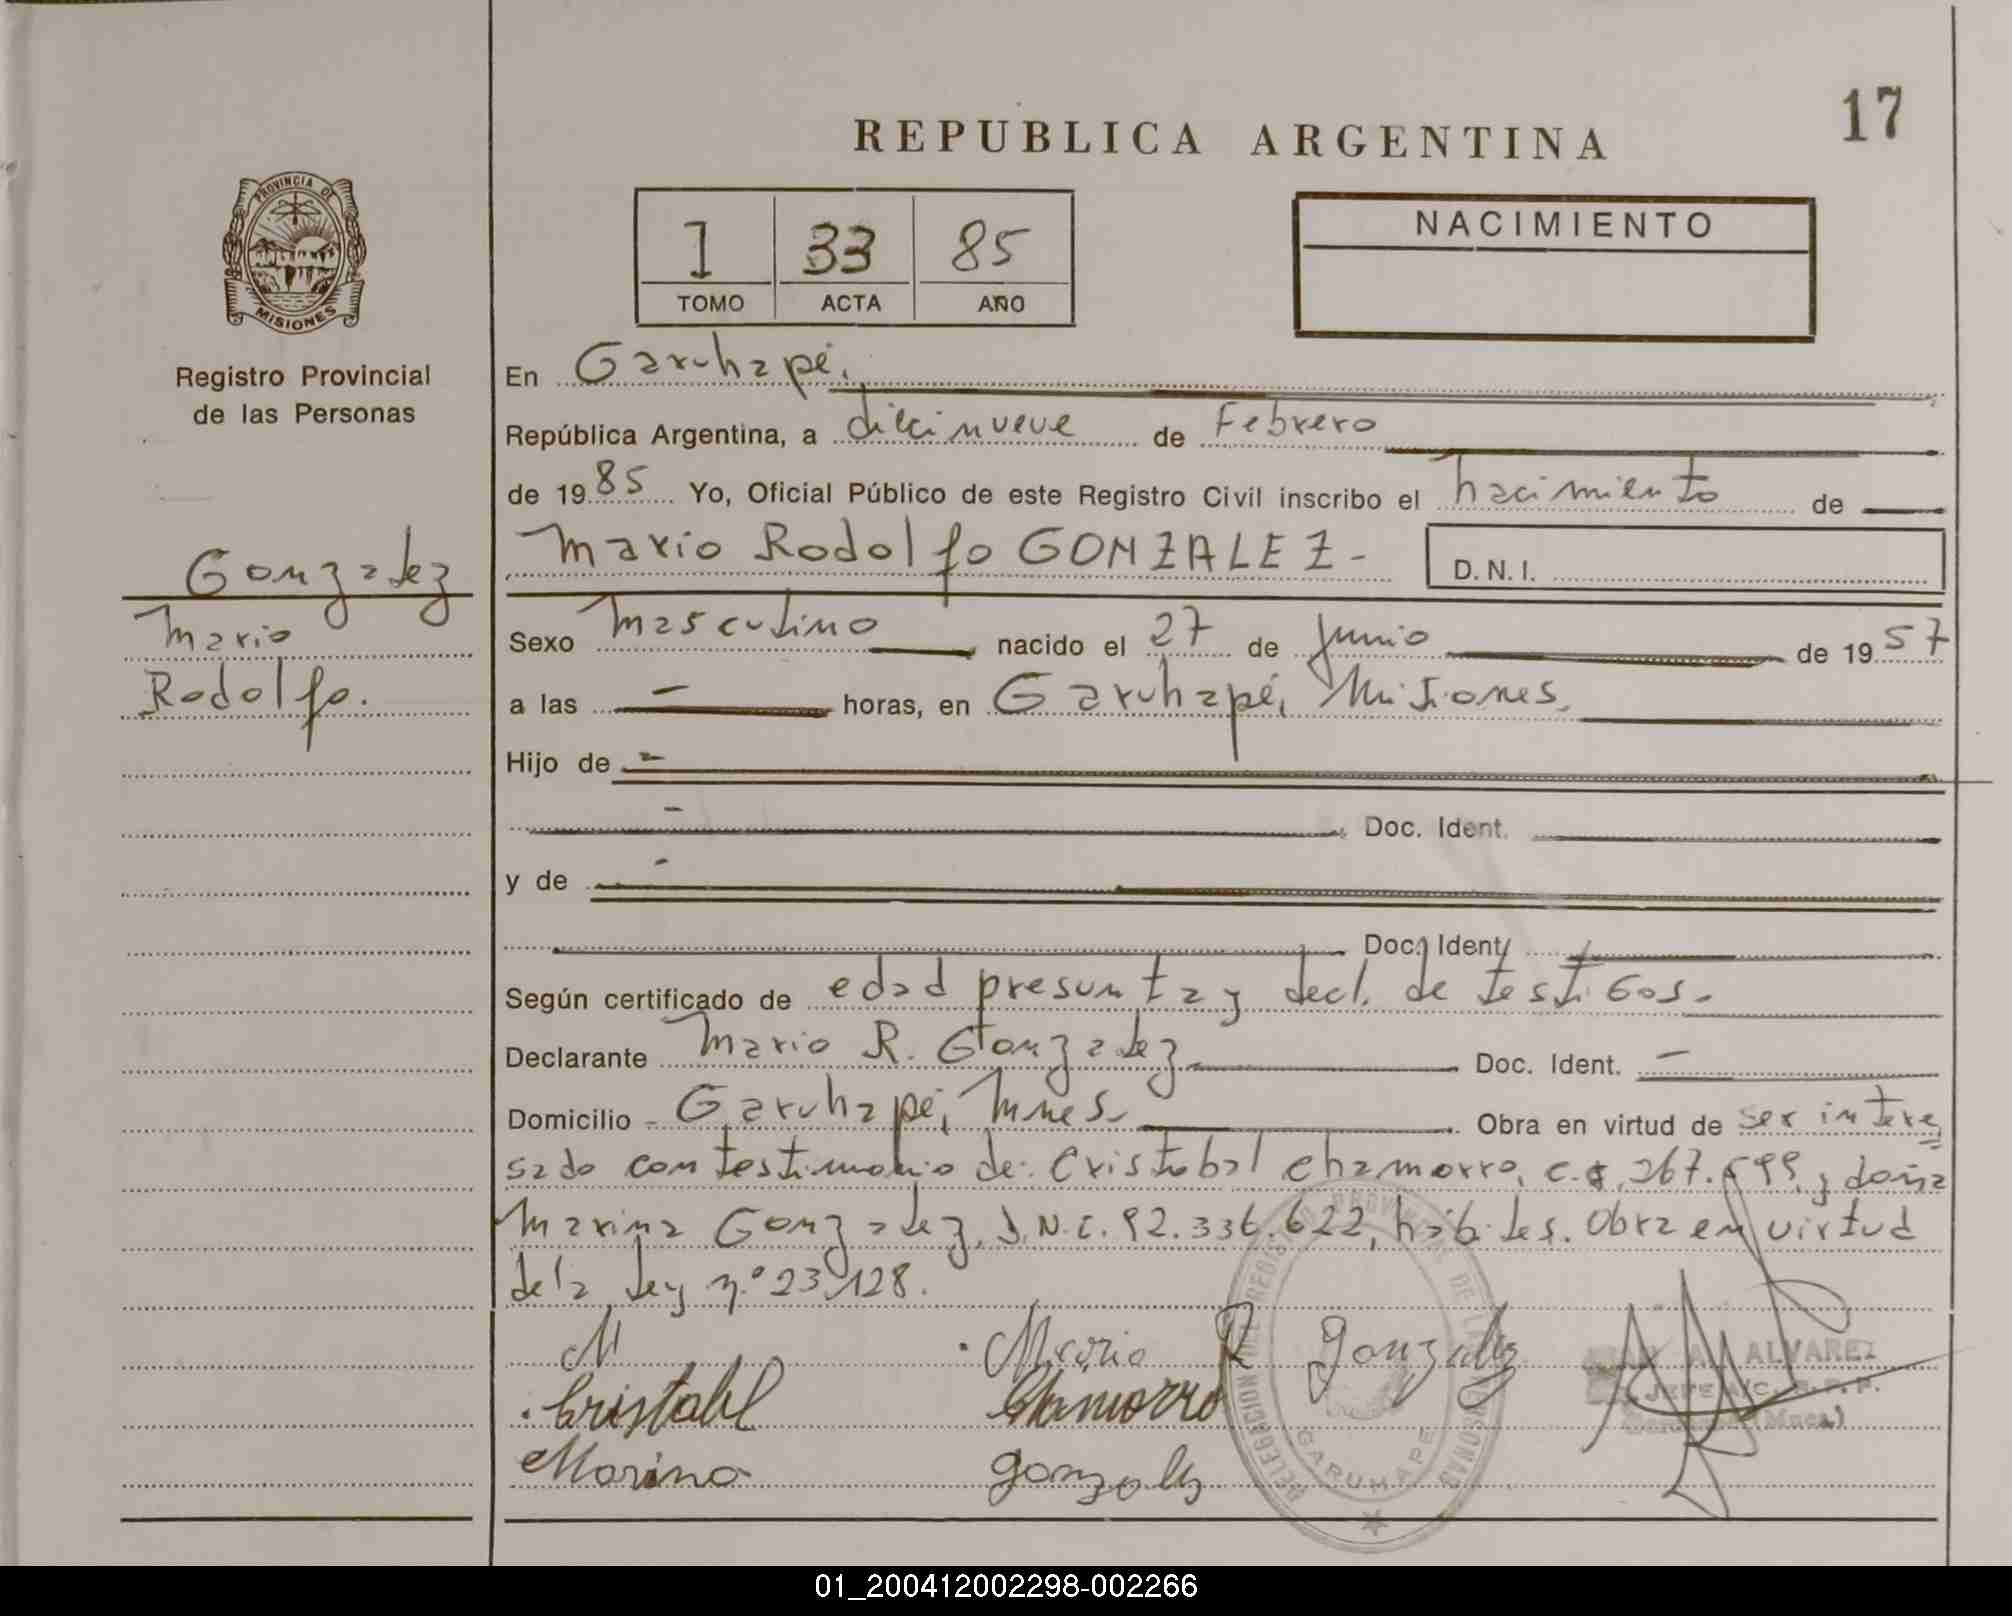 17
REPUBLICA ARGENTINA
PROVINCIA DE
MISIONES
1 33 85
TOMO ACTA AÑO
NACIMIENTO
Registro Provincial
de las Personas
Gonzalez
Mario
Rodolfo.
En Garuhapé,
República Argentina, a diecinueve de Febrero
de 1985 Yo, Oficial Público de este Registro Civil inscribo el nacimiento de
Mario Rodolfo GONZALEZ-
D.N.I.
Sexo Masculino nacido el 27 de Junio de 1957
a las - horas, en Garuhapé, Misiones,
Hijo de -
- Doc. Ident.
y de -
Doc. Ident.
Según certificado de edad presunta y decl. de testigos.
Declarante Mario R. Gonzalez Doc. Ident. -
Domicilio - Garuhapé, Mnes. Obra en virtud de ser intere
sado con testimonio de: Cristobal Chamorro, y doña
Marina Gonzalez, D.N.I. 92.336.622, hábiles. Obra en virtud
de la Ley n.º 23.128.
M Mario R Gonzalez
Cristobal Chamorro
Marina Gonzalez
DELEGACION DEL REGISTRO PROVINCIAL DE LAS PERSONAS
GARUHAPE
ALVAREZ
JEFE
01_200412002298-002266